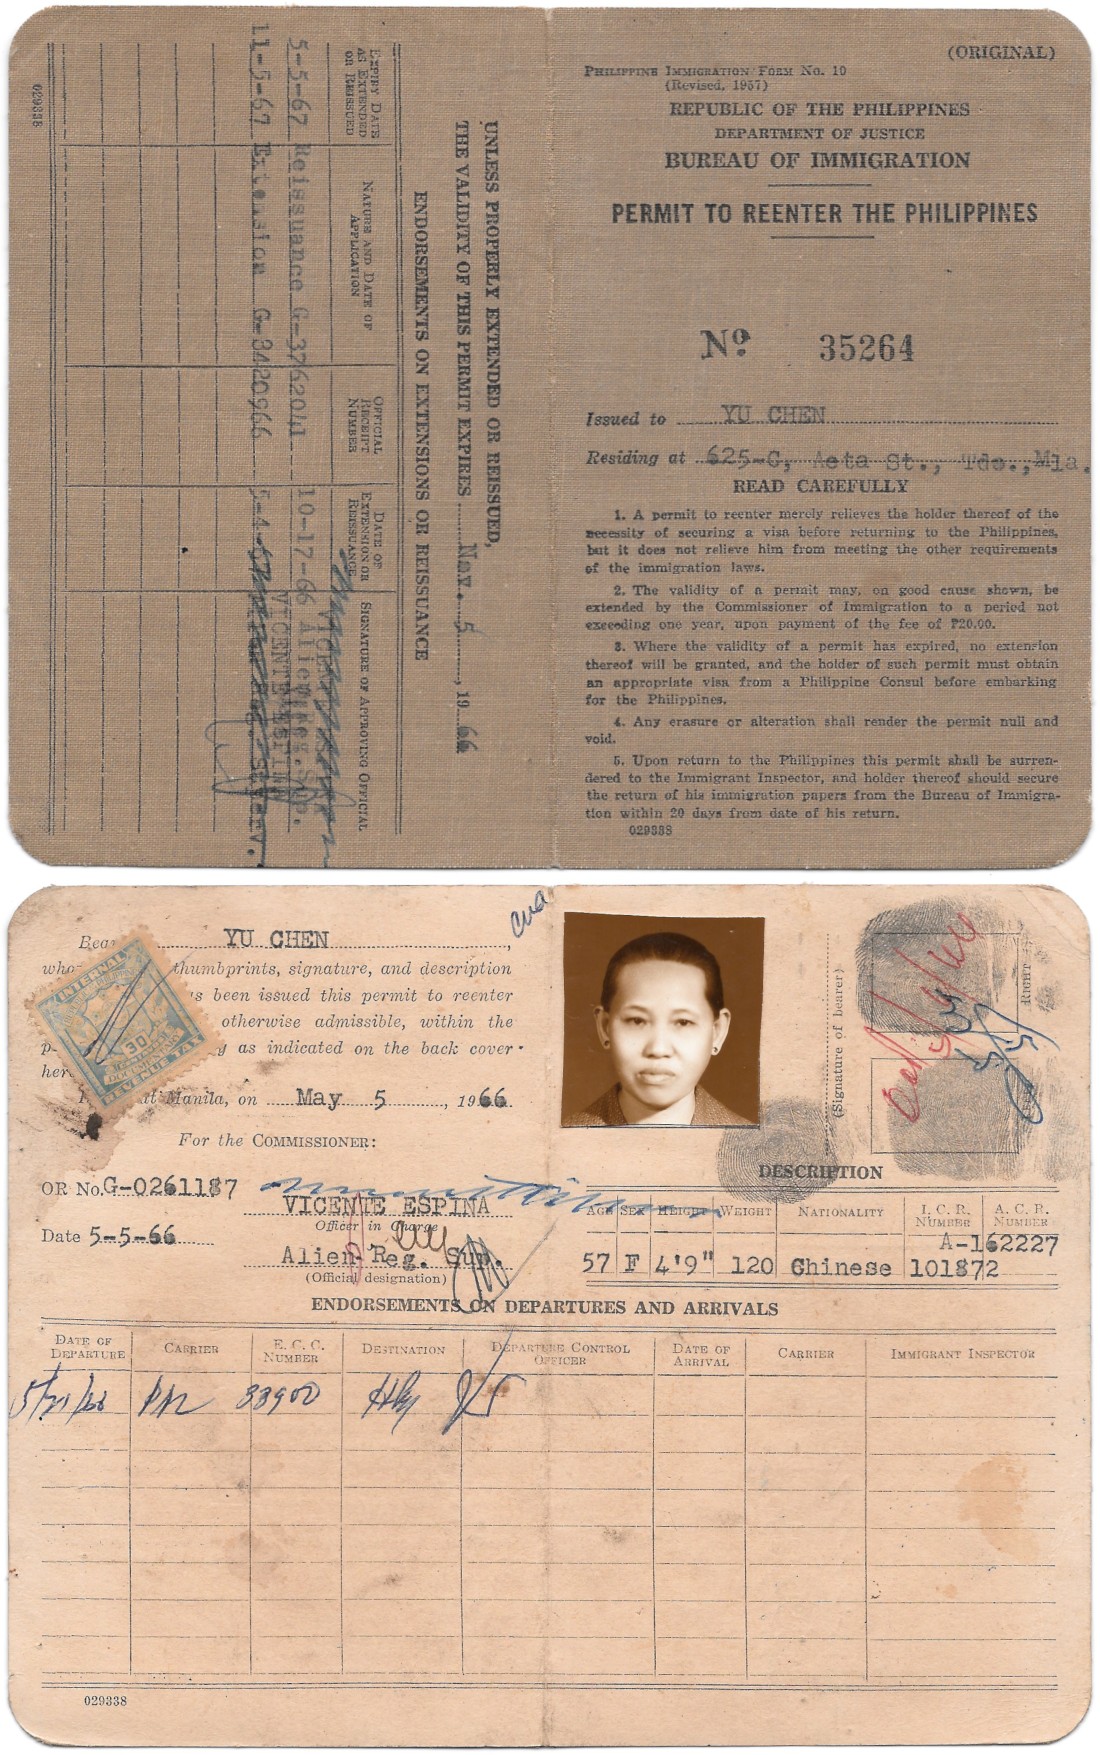 (ORIGINAL)
PHILIPPINE IMMIGRATION FORM NO. 10
(Revised, 1957)
REPUBLIC OF THE PHILIPPINES
DEPARTMENT OF JUSTICE
BUREAU OF IMMIGRATION
PERMIT TO REENTER THE PHILIPPINES
No. 35264
Issued to YU CHEN
Residing at 625-C, Aeta St., Tdo., Mla.
READ CAREFULLY
1. A permit to reenter merely relieves the holder thereof of the
necessity of securing a visa before returning to the Philippines,
but it does not relieve him from meeting the other requirements
of the immigration laws.
2. The validity of a permit may, on good cause shown, be
extended by the Commissioner of Immigration to a period not
exceeding one year, upon payment of the fee of ₱20.00.
3. Where the validity of a permit has expired, no extension
thereof will be granted, and the holder of such permit must obtain
an appropriate visa from a Philippine Consul before embarking
for the Philippines.
4. Any erasure or alteration shall render the permit null and
void.
5. Upon return to the Philippines this permit shall be surren-
dered to the Immigrant Inspector, and holder thereof should secure
the return of his immigration papers from the Bureau of Immigra-
tion within 20 days from date of his return.
029338
UNLESS PROPERLY EXTENDED OR REISSUED,
THE VALIDITY OF THIS PERMIT EXPIRES Nov. 5, 1966
ENDORSEMENTS ON EXTENSIONS OR REISSUANCE
EXPIRY DATE AS EXTENDED OR REISSUED
NATURE AND DATE OF APPLICATION
OFFICIAL RECEIPT NUMBER
DATE OF EXTENSION OR REISSUANCE
SIGNATURE OF APPROVING OFFICIAL
5-5-67 Reissuance G-3762041 10-17-66 Alien Reg. Sup.
VICENTE ESPINA
11-5-67 Extension G-3420966
029338
YU CHEN
thumbprints, signature, and description
been issued this permit to reenter
otherwise admissible, within the
as indicated on the back cover
Manila, on May 5, 1966
For the COMMISSIONER:
INTERNAL
30
REVENUE TAX
OR No. G-0261187
VICENTE ESPINA
Officer in Charge
Date 5-5-66
Alien Reg. Sup.
(Official designation)
(Signature of bearer)
RIGHT
DESCRIPTION
AGE SEX HEIGHT WEIGHT NATIONALITY I. C. R. NUMBER A. C. R. NUMBER
A-162227
57 F 4'9" 120 Chinese 101872
ENDORSEMENTS ON DEPARTURES AND ARRIVALS
DATE OF DEPARTURE CARRIER E. C. C. NUMBER DESTINATION DEPARTURE CONTROL OFFICER DATE OF ARRIVAL CARRIER IMMIGRANT INSPECTOR
5/21/66 PAL 33900
029338